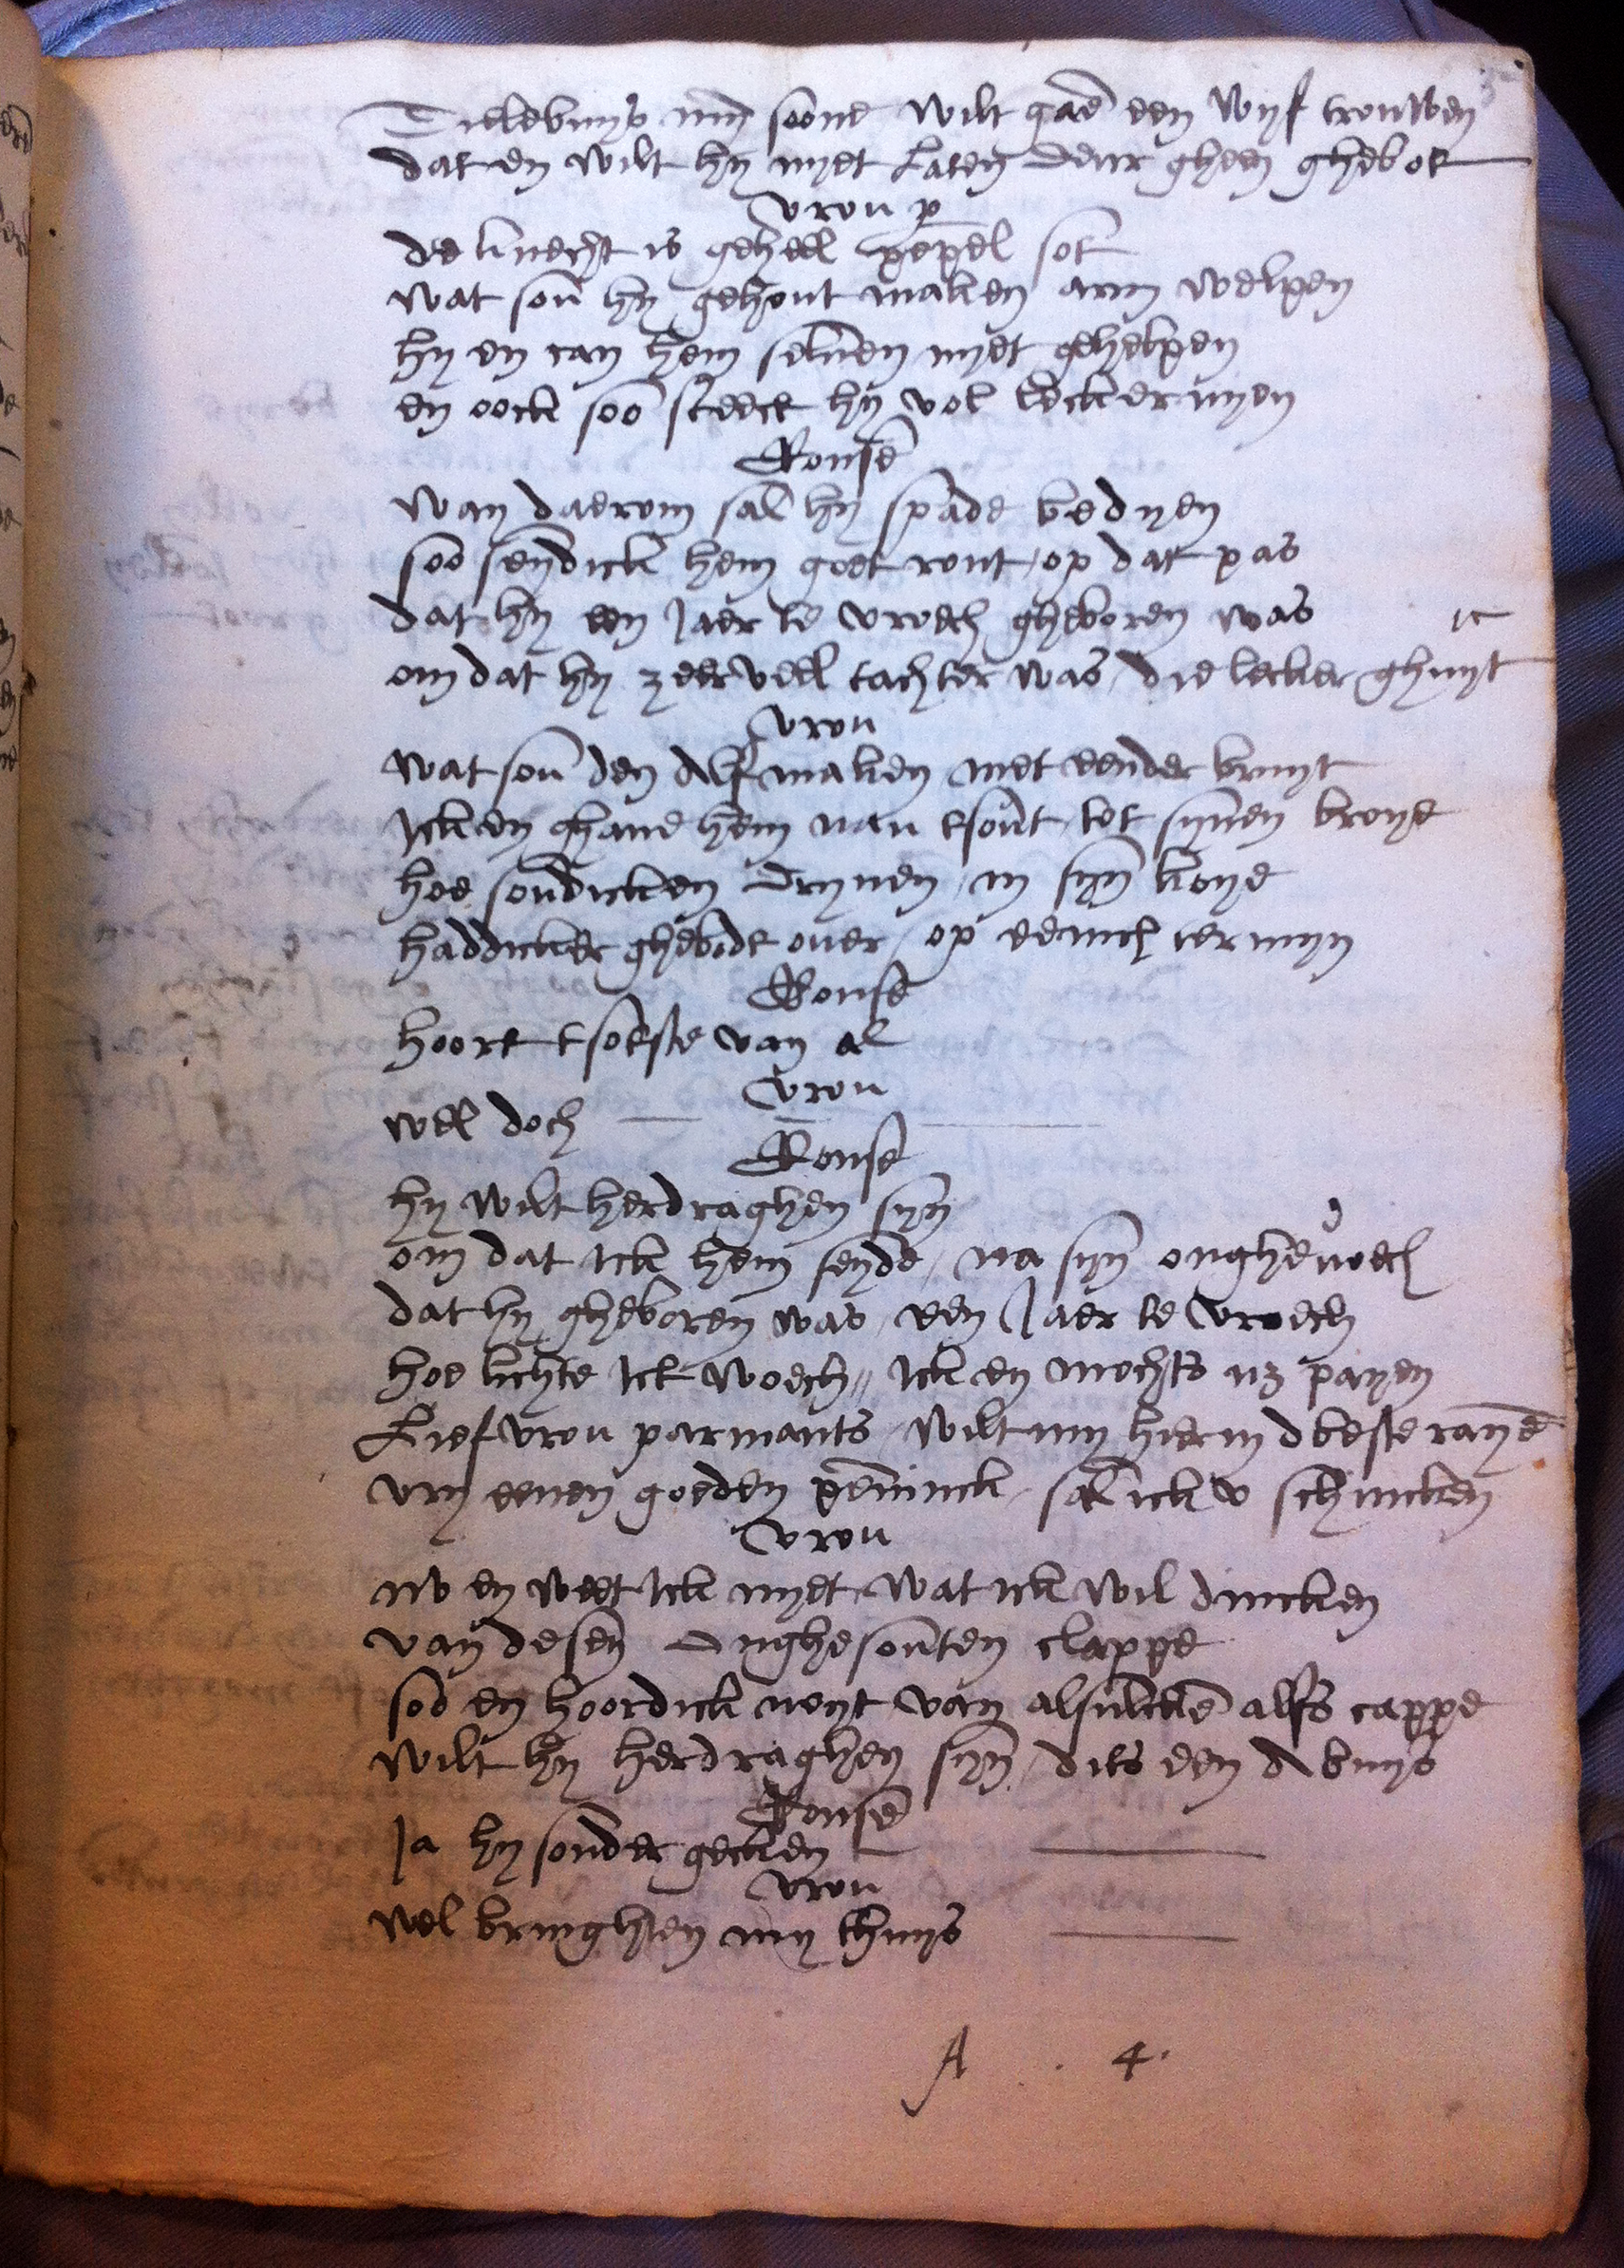 Tielebuys myn soone wilt gaen een wyf trouwen
dat en wilt hy nyet Laten deur gheen ghebot
vrou p
de knecht is geheel pepel sot
wat sou hy gehout maken arm welpen
hy en can hem seluen nyet gehelpen
en oock soo steect hy vol leckernyen
Rouse
way daerom sal hy spade bedyen
soo seyndick hem goet ront / op dat pas
dat hy een Jaer te vroech gheboren was
om dat hy zeer veel tachter was / die lecker ghuyt
vrou
wat sou den alf maken met eender bruyt
Ick en ghaue hem nau tsout tot synen broye
hoe soudicken dryuen / in syn koye
haddicker ghebot ouer / op eenich termyn
Rouse
hoort tsotste van al
vrou
wel doch
Rouse
hy wilt herdraghen syn
om dat ick hem seyde / na syn onghevoech
dat hy gheboren was / een Jaer te vroech
hoe lichte ick woech // Ick en mochts nz payen
Lief vrou parmants / wilt my hier in dbeste rayen
vry eenen goeden pennick / sal ick v schincken
vrou
nv en weet ick nyet wat ick wil dincken
van desen onghesouten clappe
soo en hoordick noyt van alsulcken alfs cappe
wilt hy herdraghen syn / dits een abuys
Rouse
Ja hy sonder gecken
vrou
wel bringhten my thuys
A . 4 .